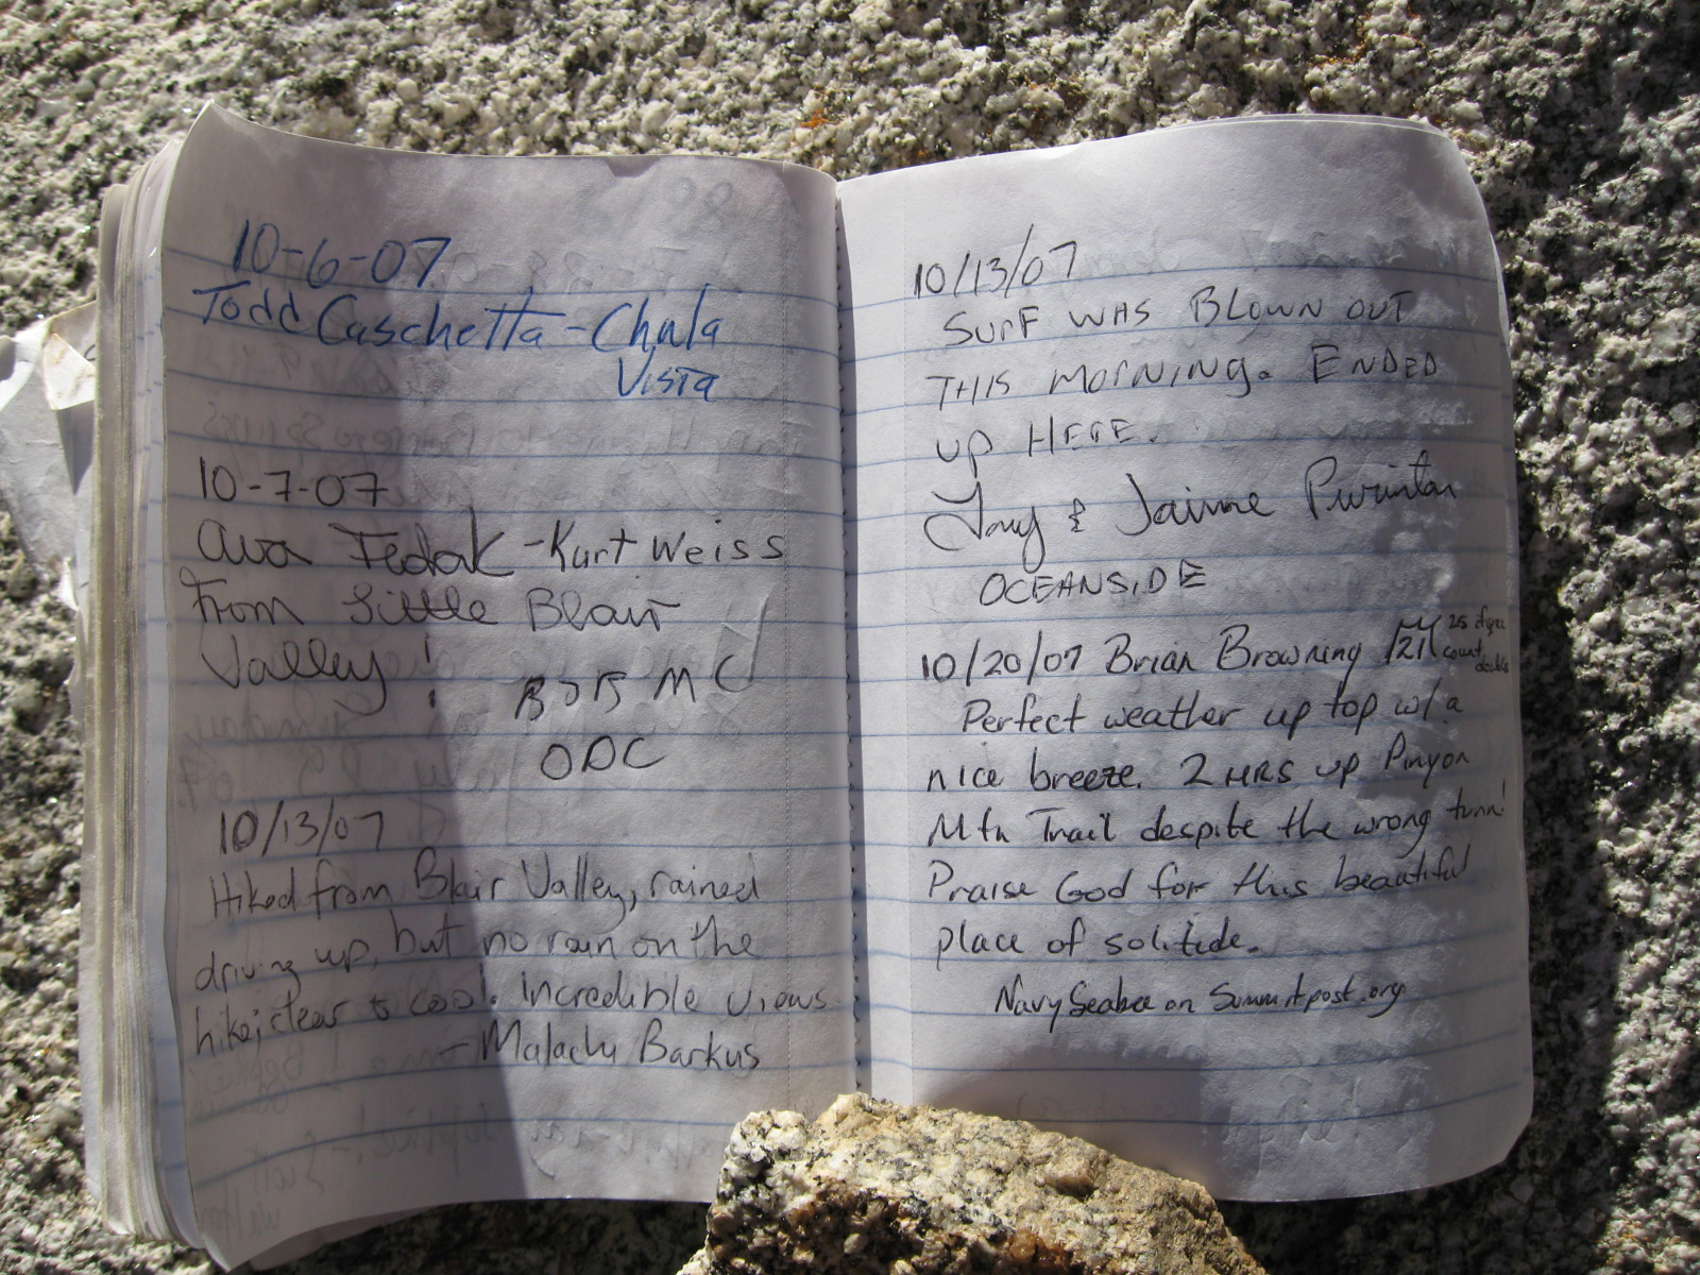 10-6-07
Todd Caschetta - Chula
Vista
10-7-07
Ava Fedak - Kurt Weiss
From Little Blair
Valley!
MC
ODC
10/13/07
Hiked from Blair Valley, rained
driving up, but no rain on the
hike; clear & cool. Incredible views
- Malachi Barkus
10/13/07
SURF WAS BLOWN OUT
THIS MORNING. ENDED
UP HERE.
& Jaime Purinton
OCEANSIDE
10/20/07 Brian Browning 121 25 dgree
count double
Perfect weather up top w/a
nice breeze. 2 HRS up Pinyon
Mtn Trail despite the wrong turn!
Praise God for this beautiful
place of solitude.
NavySeabee on Summitpost.org